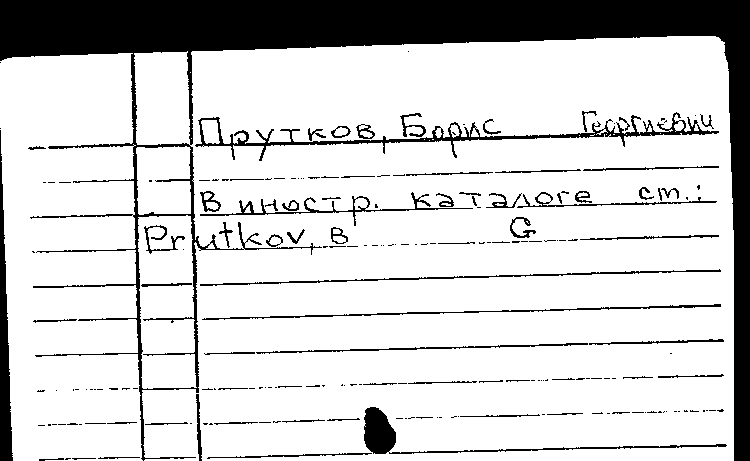 Прутков, Борис Георгиевич
В иностр. каталоге ст.:
Prutkov, B G